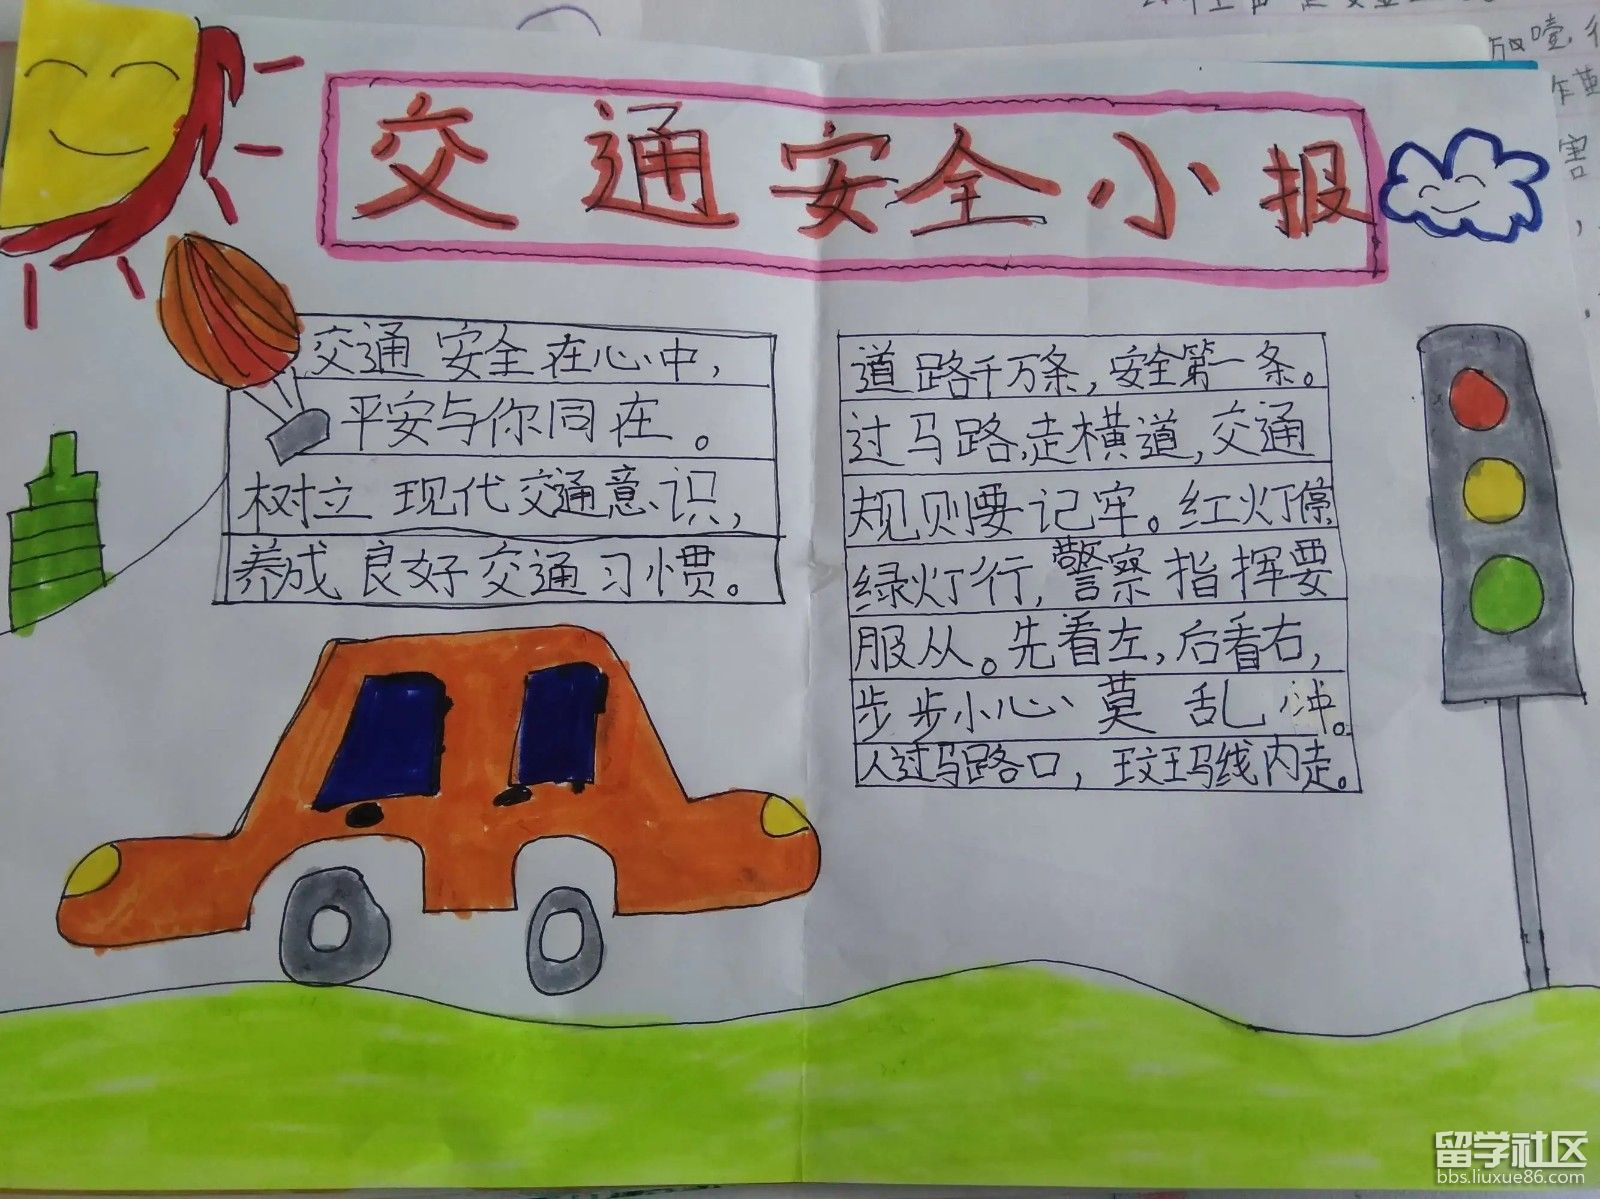 交通安全小报
交通安全在心中,
平安与你同在。
树立现代交通意识,
养成良好交通习惯。
道路千万条,安全第一条。
过马路,走横道,交通
规则要记牢。红灯停
绿灯行,警察指挥要
服从。先看左,后看右,
步步小心、莫乱冲。
人过马路口,玟玨线内走。
留学社区
bbs.liuxue86.com